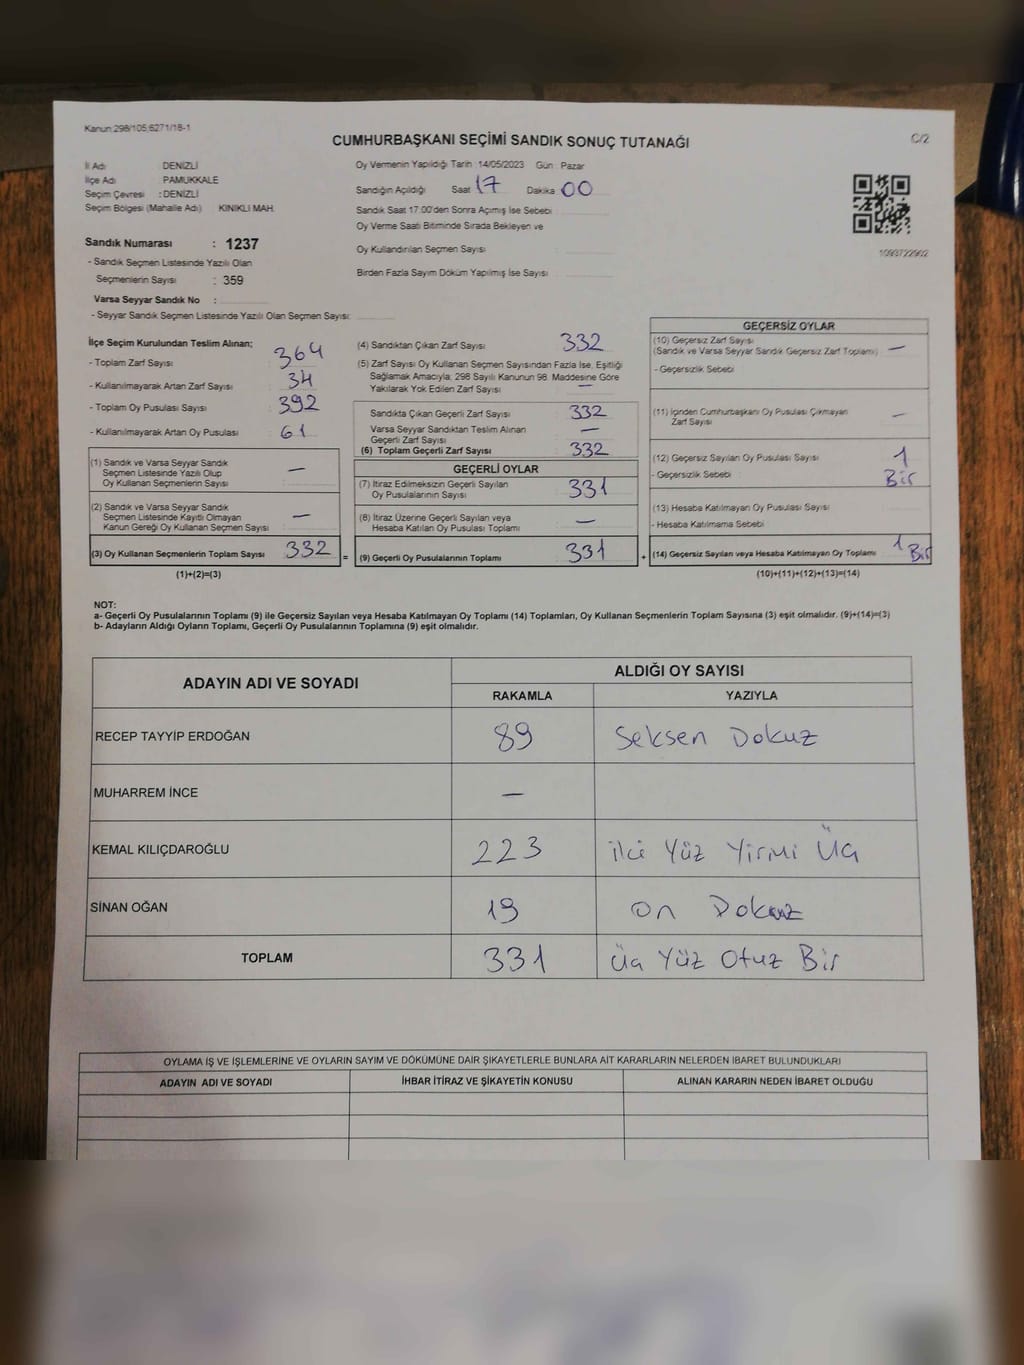 Kanun:298/105,6271/18-1
CUMHURBAŞKANI SEÇİMİ SANDIK SONUÇ TUTANAĞI
C/2
İl Adı DENİZLİ
İlçe Adı PAMUKKALE
Seçim Çevresi : DENİZLİ
Seçim Bölgesi (Mahalle Adı) KINIKLI MAH.
Oy Vermenin Yapıldığı Tarih 14/05/2023 Gün : Pazar
Sandığın Açıldığı Saat 17 Dakika 00
Sandık Saat 17:00'den Sonra Açılmış İse Sebebi
Oy Verme Saati Bitiminde Sırada Bekleyen ve
Oy Kullandırılan Seçmen Sayısı
Birden Fazla Sayım Döküm Yapılmış İse Sayısı
1093722902
Sandık Numarası : 1237
- Sandık Seçmen Listesinde Yazılı Olan
Seçmenlerin Sayısı : 359
Varsa Seyyar Sandık No :
- Seyyar Sandık Seçmen Listesinde Yazılı Olan Seçmen Sayısı:
İlçe Seçim Kurulundan Teslim Alınan;
- Toplam Zarf Sayısı 364
- Kullanılmayarak Artan Zarf Sayısı 34
- Toplam Oy Pusulası Sayısı 392
- Kullanılmayarak Artan Oy Pusulası 61
(1) Sandık ve Varsa Seyyar Sandık
Seçmen Listesinde Yazılı Olup
Oy Kullanan Seçmenlerin Sayısı —
(2) Sandık ve Varsa Seyyar Sandık
Seçmen Listesinde Kayıtlı Olmayan
Kanun Gereği Oy Kullanan Seçmen Sayısı —
(3) Oy Kullanan Seçmenlerin Toplam Sayısı 332 =
(1)+(2)=(3)
(4) Sandıktan Çıkan Zarf Sayısı 332
(5) Zarf Sayısı Oy Kullanan Seçmen Sayısından Fazla İse, Eşitliği
Sağlamak Amacıyla; 298 Sayılı Kanunun 98. Maddesine Göre
Yakılarak Yok Edilen Zarf Sayısı —
Sandıkta Çıkan Geçerli Zarf Sayısı 332
Varsa Seyyar Sandıktan Teslim Alınan
Geçerli Zarf Sayısı —
(6) Toplam Geçerli Zarf Sayısı 332
GEÇERLİ OYLAR
(7) İtiraz Edilmeksizin Geçerli Sayılan
Oy Pusulalarının Sayısı 331
(8) İtiraz Üzerine Geçerli Sayılan veya
Hesaba Katılan Oy Pusulası Toplamı —
(9) Geçerli Oy Pusulalarının Toplamı 331 +
GEÇERSİZ OYLAR
(10) Geçersiz Zarf Sayısı
(Sandık ve Varsa Seyyar Sandık Geçersiz Zarf Toplamı) —
- Geçersizlik Sebebi
(11) İçinden Cumhurbaşkanı Oy Pusulası Çıkmayan
Zarf Sayısı —
(12) Geçersiz Sayılan Oy Pusulası Sayısı 1
- Geçersizlik Sebebi Bir
(13) Hesaba Katılmayan Oy Pusulası Sayısı
- Hesaba Katılmama Sebebi
(14) Geçersiz Sayılan veya Hesaba Katılmayan Oy Toplamı 1 Bir
(10)+(11)+(12)+(13)=(14)
NOT:
a- Geçerli Oy Pusulalarının Toplamı (9) ile Geçersiz Sayılan veya Hesaba Katılmayan Oy Toplamı (14) Toplamları, Oy Kullanan Seçmenlerin Toplam Sayısına (3) eşit olmalıdır. (9)+(14)=(3)
b- Adayların Aldığı Oyların Toplamı, Geçerli Oy Pusulalarının Toplamına (9) eşit olmalıdır.
ADAYIN ADI VE SOYADI ALDIĞI OY SAYISI
RAKAMLA YAZIYLA
RECEP TAYYİP ERDOĞAN 89 Seksen Dokuz
MUHARREM İNCE —
KEMAL KILIÇDAROĞLU 223 iki Yüz Yirmi Üç
SİNAN OĞAN 19 on Dokuz
TOPLAM 331 Üç Yüz Otuz Bir
OYLAMA İŞ VE İŞLEMLERİNE VE OYLARIN SAYIM VE DÖKÜMÜNE DAİR ŞİKAYETLERLE BUNLARA AİT KARARLARIN NELERDEN İBARET BULUNDUKLARI
ADAYIN ADI VE SOYADI İHBAR İTİRAZ VE ŞİKAYETİN KONUSU ALINAN KARARIN NEDEN İBARET OLDUĞU